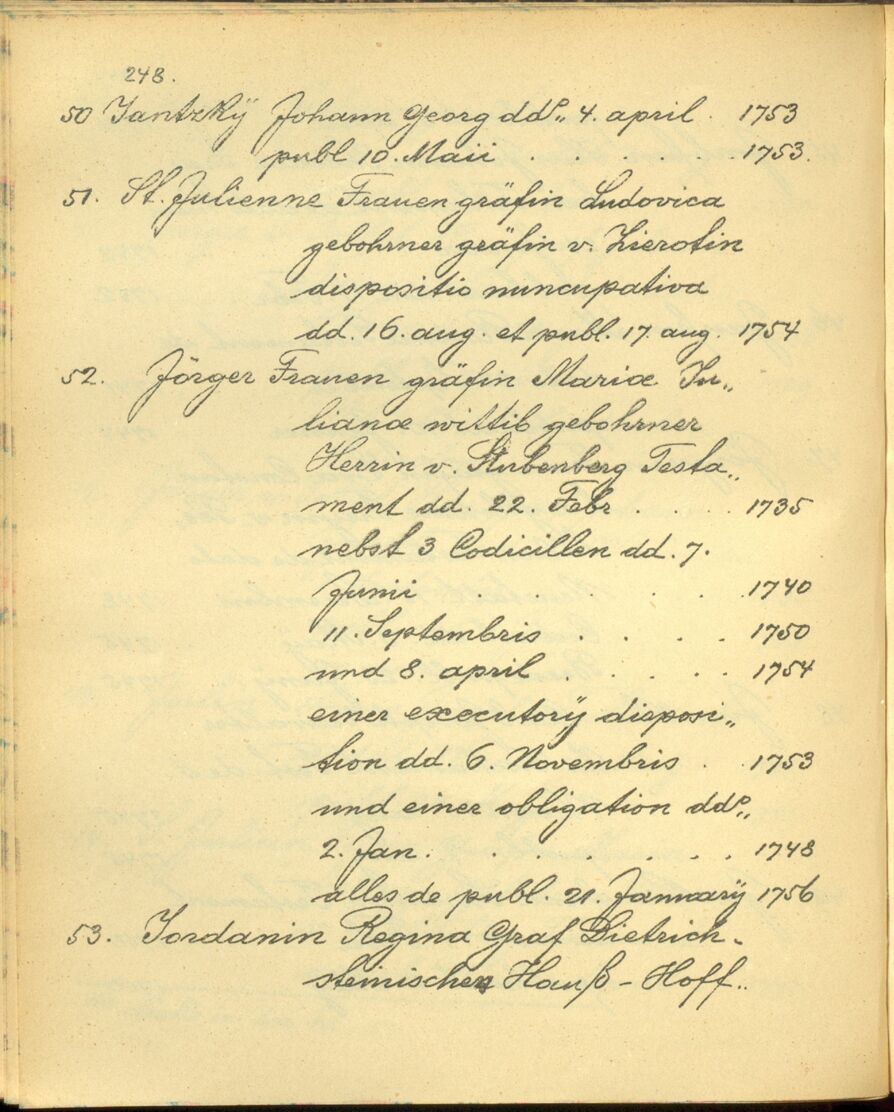 248.
50 Jantzkÿ Johann Georg ddº„ 4. april . 1753
publ 10. Maii . . . . . . 1753.
51. St. Julienne Frauen gräfin Ludovica
gebohrner gräfin v. Zierotin
dispositio nuncupativa
dd. 16. aug. et publ. 17. aug. 1754
52. Jörger Frauen gräfin Mariæ Ju„
lianæ wittib gebohrner
Herrin v. Stubenberg Testa„
ment dd. 22. Febr . . . . 1735
nebst 3 Codicillen dd. 7.
Junii . . . 1740
11. Septembris . . . . 1750
und 8. april . . . . . 1754
einer executorÿ disposi„
tion dd. 6. Novembris . . 1753
und einer obligation ddº„
2. Jan. . . . . . . 1748
alles de publ. 21. Januarÿ 1756
53. Jordanin Regina Graf Dietrich-
steinischen Hauß-Hoff„